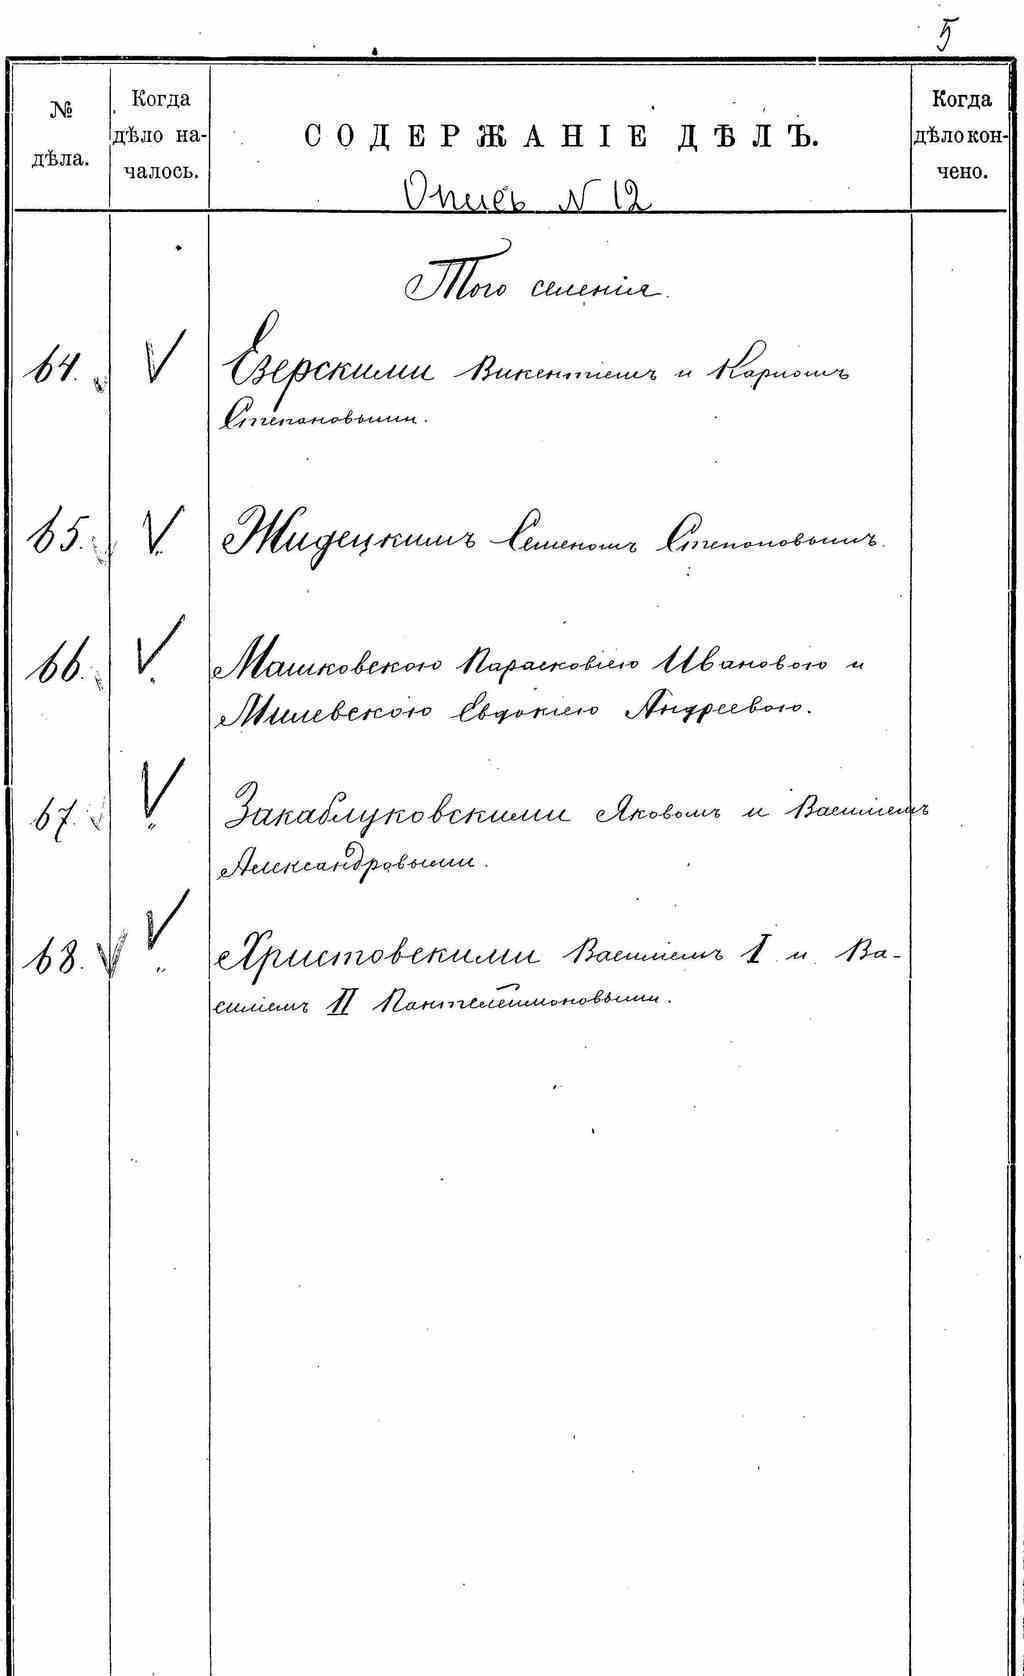 5
№ дѣла.
Когда дѣло началось.
СОДЕРЖАНІЕ ДѢЛЪ.
Когда дѣло кончено.
Опись N 12
Того селенія.
64. V Езерскими Викентіемъ и Карпомъ
Степановыми.
65. V Жидецкимъ Семеномъ Степановымъ.
66. V Машковскою Парасковіею Ивановою и
Милевскою Евдокіею Андреевою.
67. V Закаблуковскими Яковомъ и Василіемъ
Александровыми.
68. V V Христовскими Василіемъ I и Ва-
силіемъ II Пантелеймоновыми.